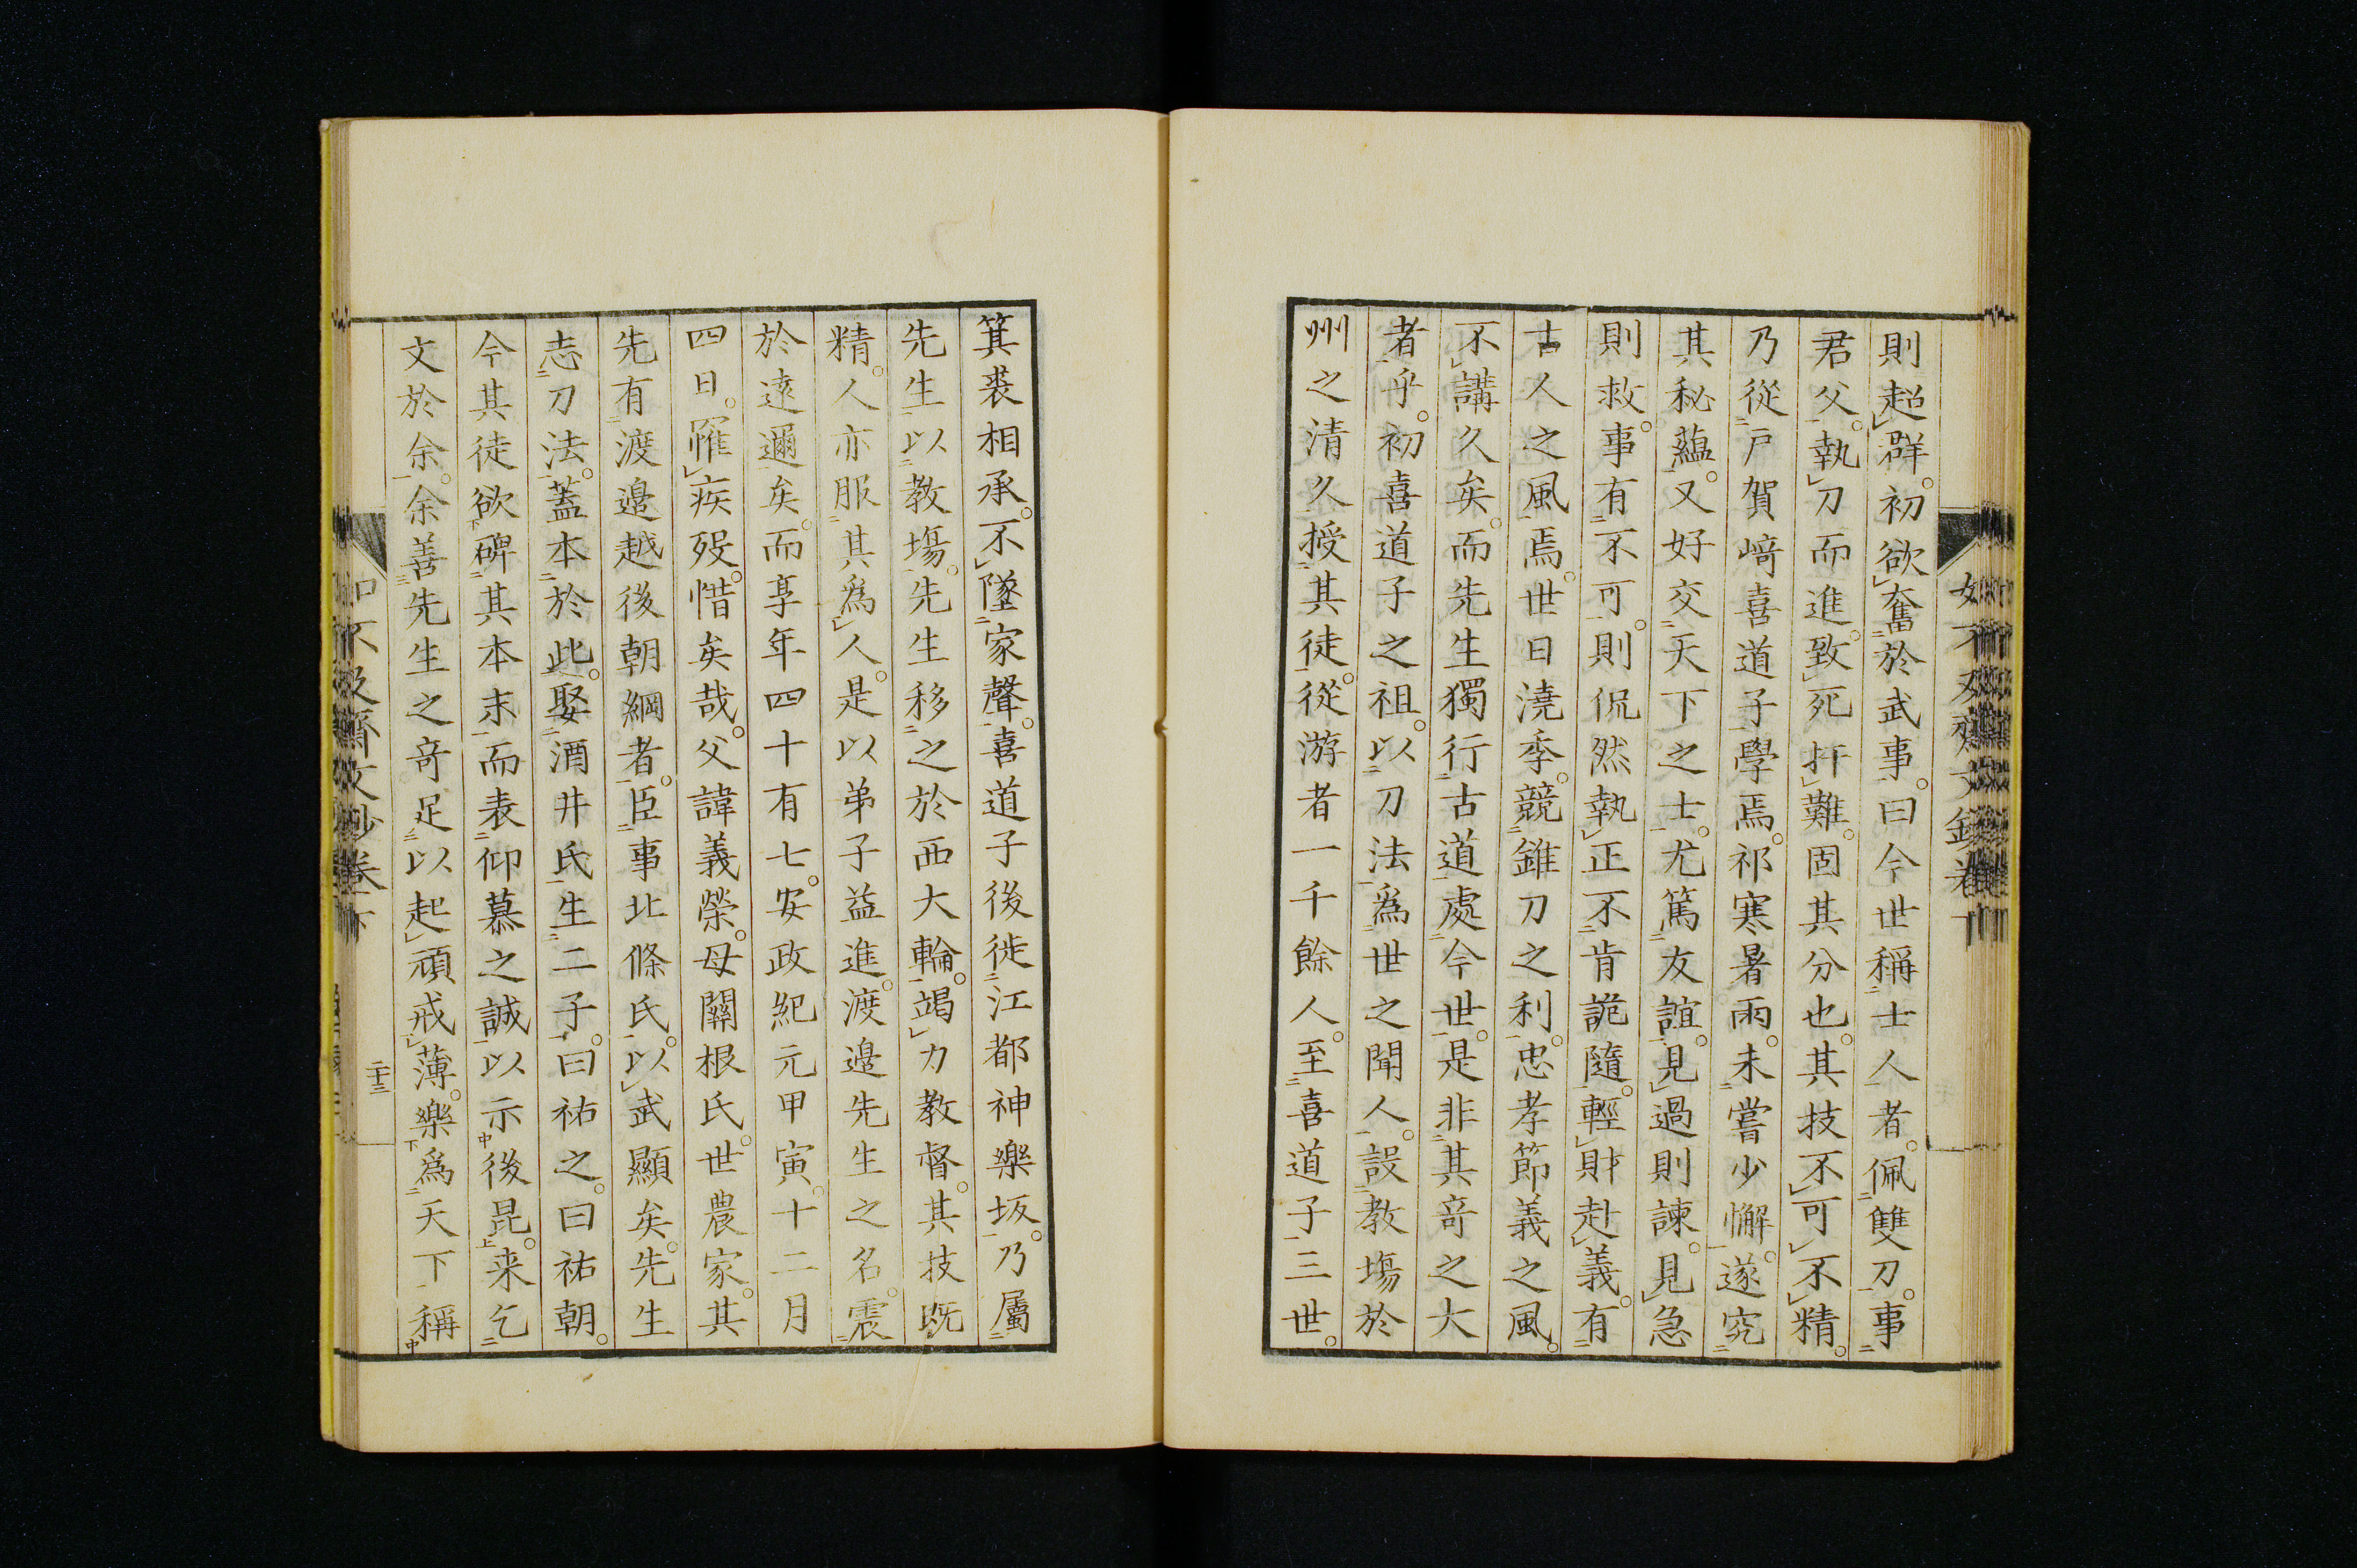 則超群。初欲奮於武事。曰今世稱士人者。佩雙刀。事
君父。執刀而進。致死扞難。固其分也。其技不可不精。
乃從戸賀﨑喜道子學焉。祁寒暑雨。未嘗少懈。遂究
其秘蘊。又好交天下之士。尤篤友誼。見過則諫。見急
則救。事有不可。則侃然執正不肯詭隨。輕財赴義。有
古人之風焉。世日澆季。競錐刀之利。忠孝節義之風。
不講久矣。而先生獨行古道處今世。是非其竒之大
者乎。初喜道子之祖。以刀法爲世之聞人。設教塲於
州之清久授其徒。從游者一千餘人。至喜道子三世。
箕裘相承。不墜家聲。喜道子後徙江都神樂坂。乃屬
先生以教塲。先生移之於西大輪。竭力教督。其技既
精。人亦服其爲人。是以弟子益進。渡邉先生之名。震
於遠邇矣。而享年四十有七。安政紀元甲寅。十二月
四日。罹疾歿。惜矣哉。父諱義榮。母關根氏。世農家。其
先有渡邉越後朝綱者。臣事北條氏。以武顯矣。先生
志刀法。蓋本於此。娶酒井氏生二子。曰祐之。曰祐朝。
今其徒欲碑其本末而表仰慕之誠以示後昆。来乞
文於余。余善先生之竒足以起頑戒薄。樂爲天下稱
如不及齋文鈔卷下
二十三